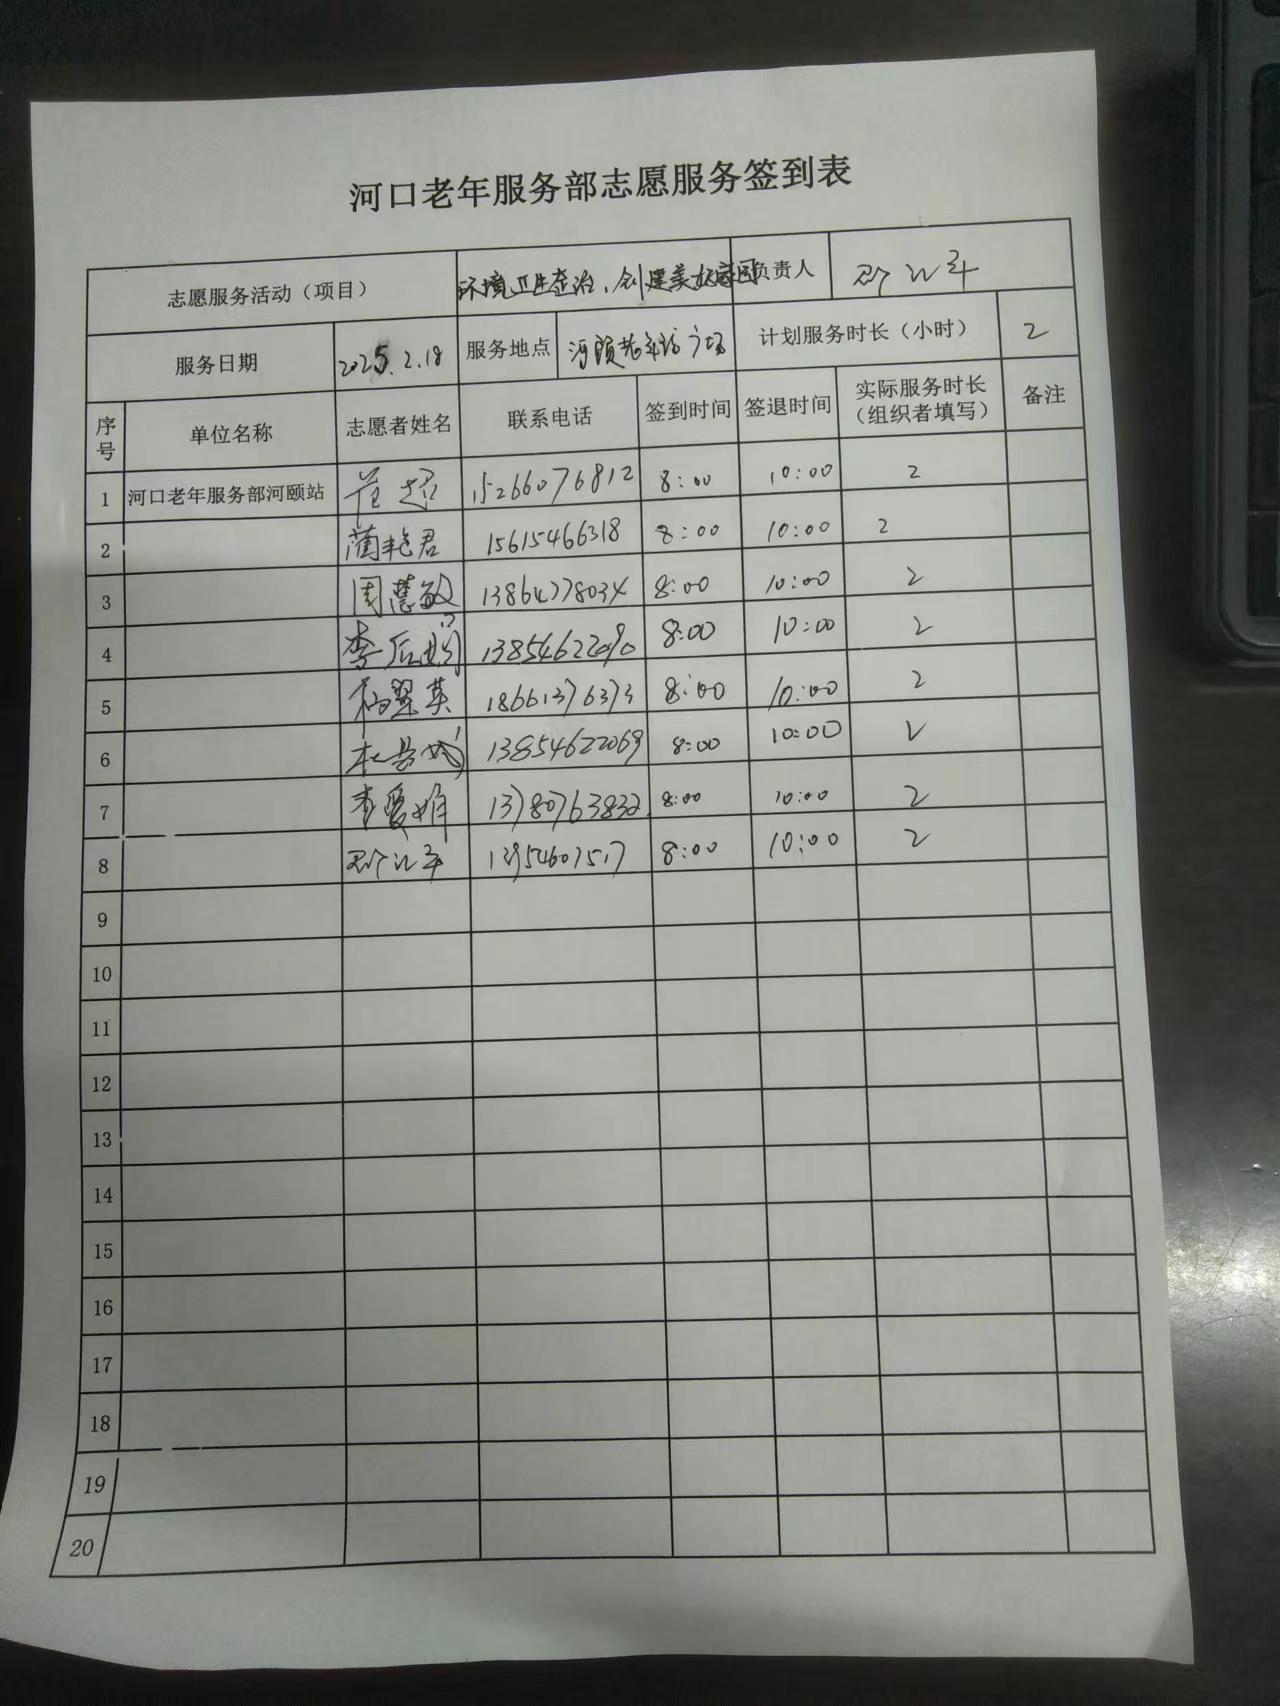 河口老年服务部志愿服务签到表
志愿服务活动（项目） 环境卫生整治、创建美好家园 负责人
服务日期 2025.2.18 服务地点 计划服务时长（小时） 2
序号 单位名称 志愿者姓名 联系电话 签到时间 签退时间 实际服务时长（组织者填写） 备注
1 河口老年服务部河颐站 范超 15266076812 8:00 10:00 2
2 蔺艳君 15615466318 8:00 10:00 2
3 周慧敏 13864778034 8:00 10:00 2
4 李后娟 13854622090 8:00 10:00 2
5 杨翠英 18661376373 8:00 10:00 2
6 13854622069 8:00 10:00 2
7 李爱娟 13780763832 8:00 10:00 2
8 8:00 10:00 2
9
10
11
12
13
14
15
16
17
18
19
20